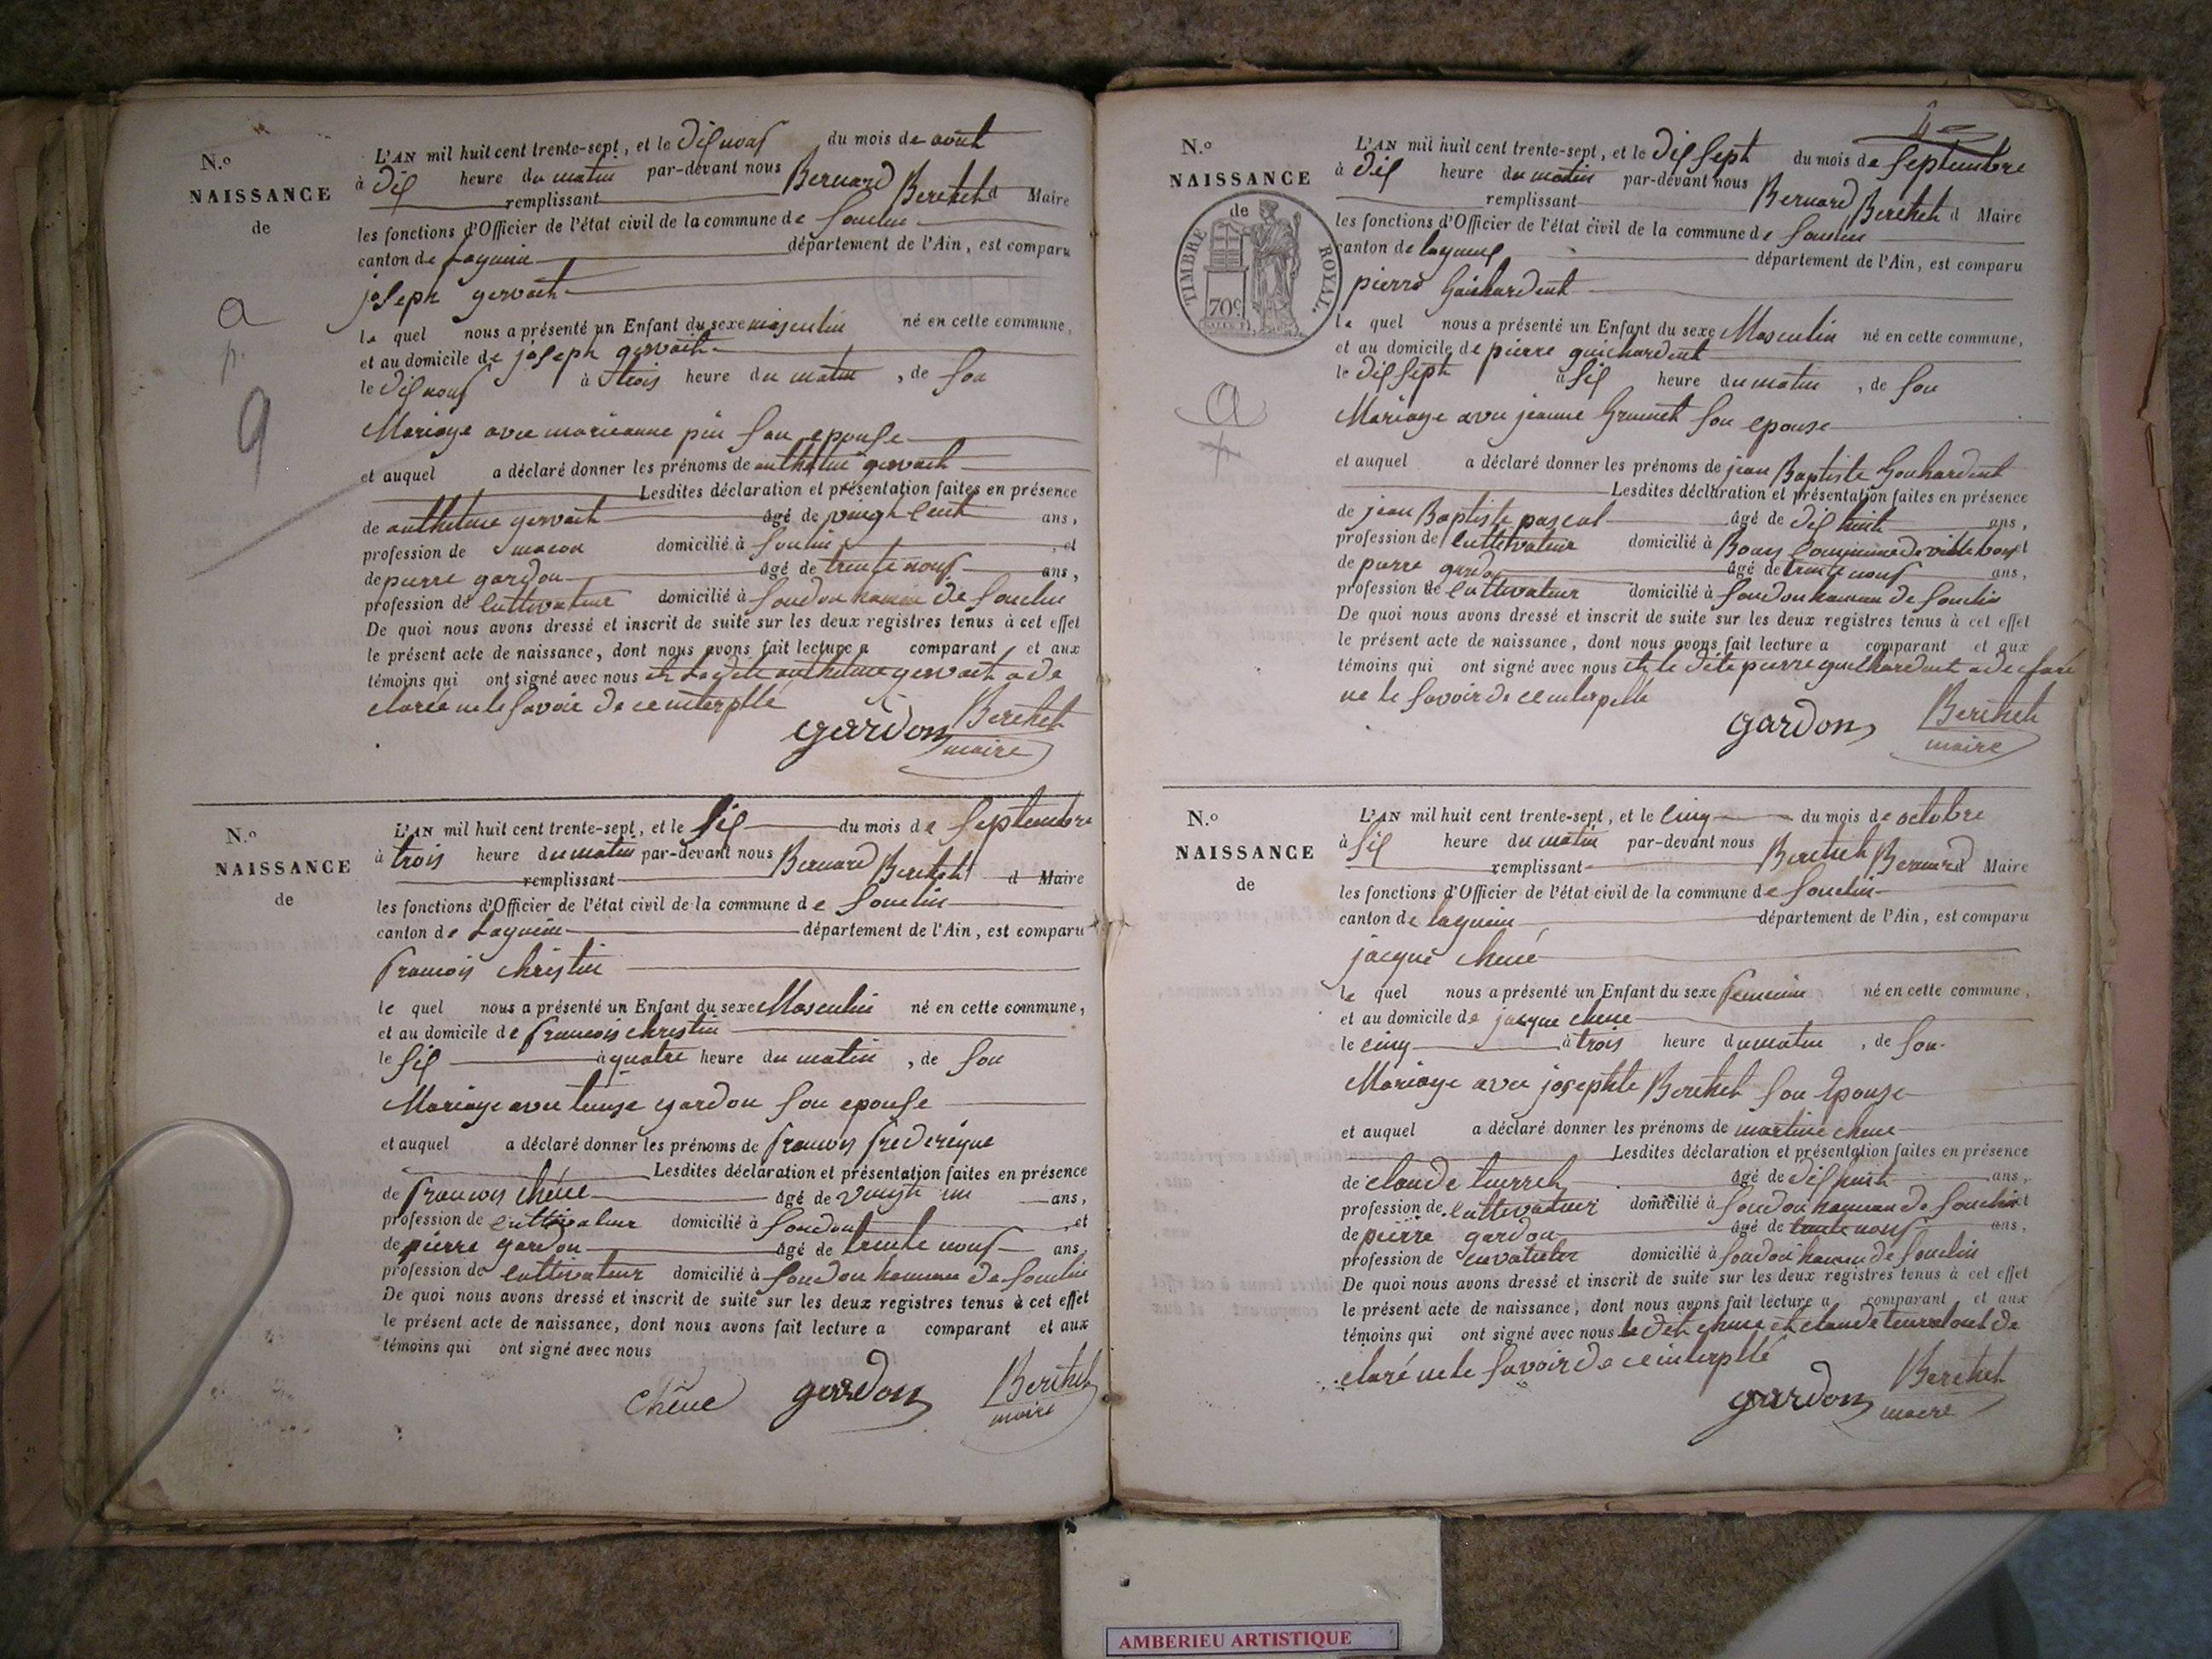 N.º
NAISSANCE
de
a
p.
9
L'AN mil huit cent trente-sept, et le dix nouf du mois de avût
à dix heure du matin par-devant nous Bernard Berthet d Maire
remplissant
les fonctions d'Officier de l'état civil de la commune de Souclin
canton de Lagnieu département de l'Ain, est comparu
joseph gervait
le quel nous a présenté un Enfant du sexe masculin né en cette commune,
et au domicile de joseph gervait
le dix nouf à trois heure du matin, de son
Mariage avec marieanne pin son epouse
et auquel a déclaré donner les prénoms de anthelme gervait
Lesdites déclaration et présentation faites en présence
de anthelme gervait âgé de ans,
profession de macon domicilié à Souclin, et
de pierre gardon âgé de trente nouf ans,
profession de cultivateur domicilié à Soudon hameau de Souclin
De quoi nous avons dressé et inscrit de suite sur les deux registres tenus à cet effet
le présent acte de naissance, dont nous avons fait lecture a comparant et aux
témoins qui ont signé avec nous et Ledite anthelme gervait a dé
claréé ne le savoir de ce interpllé
gardon Berthet
maire
N.º
NAISSANCE
de
L'AN mil huit cent trente-sept, et le six du mois de septembre
à trois heure du matin par-devant nous Bernard Berthet d Maire
remplissant
les fonctions d'Officier de l'état civil de la commune de Souclin
canton de Lagnieu département de l'Ain, est comparu
francois christin
le quel nous a présenté un Enfant du sexe Masculin né en cette commune,
et au domicile de francois christin
le six à quatre heure du matin, de son
Mariage avec gardon son epouse
et auquel a déclaré donner les prénoms de francois frederique
Lesdites déclaration et présentation faites en présence
de francois chêne âgé de vingt un ans,
profession de cultivateur domicilié à Soudon, et
de pierre gardon âgé de trente nouf ans
profession de cultivateur domicilié à Soudon hameau de Souclin
De quoi nous avons dressé et inscrit de suite sur les deux registres tenus à cet effet
le présent acte de naissance, dont nous avons fait lecture a comparant et aux
témoins qui ont signé avec nous
Chêne gardon Berthet
maire
N.º
NAISSANCE
de
TIMBRE ROYAL.
70c
a
p
4
L'AN mil huit cent trente-sept, et le dix sept du mois de septembre
à dix heure du matin par-devant nous Bernard Berthet d Maire
remplissant
les fonctions d'Officier de l'état civil de la commune de Souclin
canton de lagnieu département de l'Ain, est comparu
pierre Guichardent
le quel nous a présenté un Enfant du sexe Masculin né en cette commune,
et au domicile de pierre guichardent
le dix sept à six heure du matin, de son
Mariage avec jeanne son epouse
et auquel a déclaré donner les prénoms de jean Baptiste
Lesdites déclaration et présentation faites en présence
de jean Baptiste pascal âgé de dix huit ans,
profession de cultivateur domicilié à commune de ville bois et
de pierre gardon âgé de trente nouf ans,
profession de cultivateur domicilié à Soudon hameau de Souclin
De quoi nous avons dressé et inscrit de suite sur les deux registres tenus à cet effet
le présent acte de naissance, dont nous avons fait lecture a comparant et aux
témoins qui ont signé avec nous et le dite pierre guichardent a déclaré
ne le savoir de ce interpellé
gardon Berthet
maire
N.º
NAISSANCE
de
L'AN mil huit cent trente-sept, et le cinq du mois de octobre
à six heure du matin par-devant nous Berthet Bernard d Maire
remplissant
les fonctions d'Officier de l'état civil de la commune de Souclin
canton de lagnieu département de l'Ain, est comparu
jacque chené
le quel nous a présenté un Enfant du sexe feminin né en cette commune,
et au domicile de jacque chene
le cinq à trois heure du matin, de son
Mariage avec josephte Berthet son Epouse
et auquel a déclaré donner les prénoms de martine chene
Lesdites déclaration et présentation faites en présence
de claude âgé de dix huit ans,
profession de cultivateur domicilié à Soudon hameau de Souclin et
de pierre gardon âgé de trente nouf ans,
profession de domicilié à Soudon hameau de Souclin
De quoi nous avons dressé et inscrit de suite sur les deux registres tenus à cet effet
le présent acte de naissance, dont nous avons fait lecture a comparant et aux
témoins qui ont signé avec nous le dit chene et claude ont dé
claré ne le savoir de ce interpllé
gardon Berthet
maire
AMBERIEU ARTISTIQUE